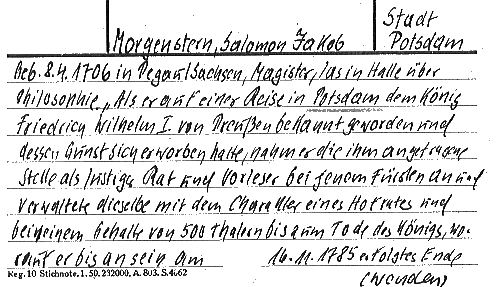 Morgenstern, Salomon Jakob
Stadt
Potsdam
Geb. 8.4. 1706 in Pegau/Sachsen, Magister, las in Halle über
Philosophie. „Als er auf einer Reise in Potsdam dem König
Friedrich Wilhelm I. von Preußen bekannt geworden und
dessen Gunst sich erworben hatte, nahm er die ihm angetragene
Stelle als lustiger Rat und Vorleser bei jenem Fürsten an und
verwaltete dieselbe mit dem Charakter eines Hofrates und
bei einem Gehalte von 500 Thalern bis zum Tode des Königs, wo-
rauf er bis an sein am 16.11.1785 erfolgtes Ende
(wenden)
Reg. 10 Stichnote. 1. 50. 232000. A. 803. S. 4662